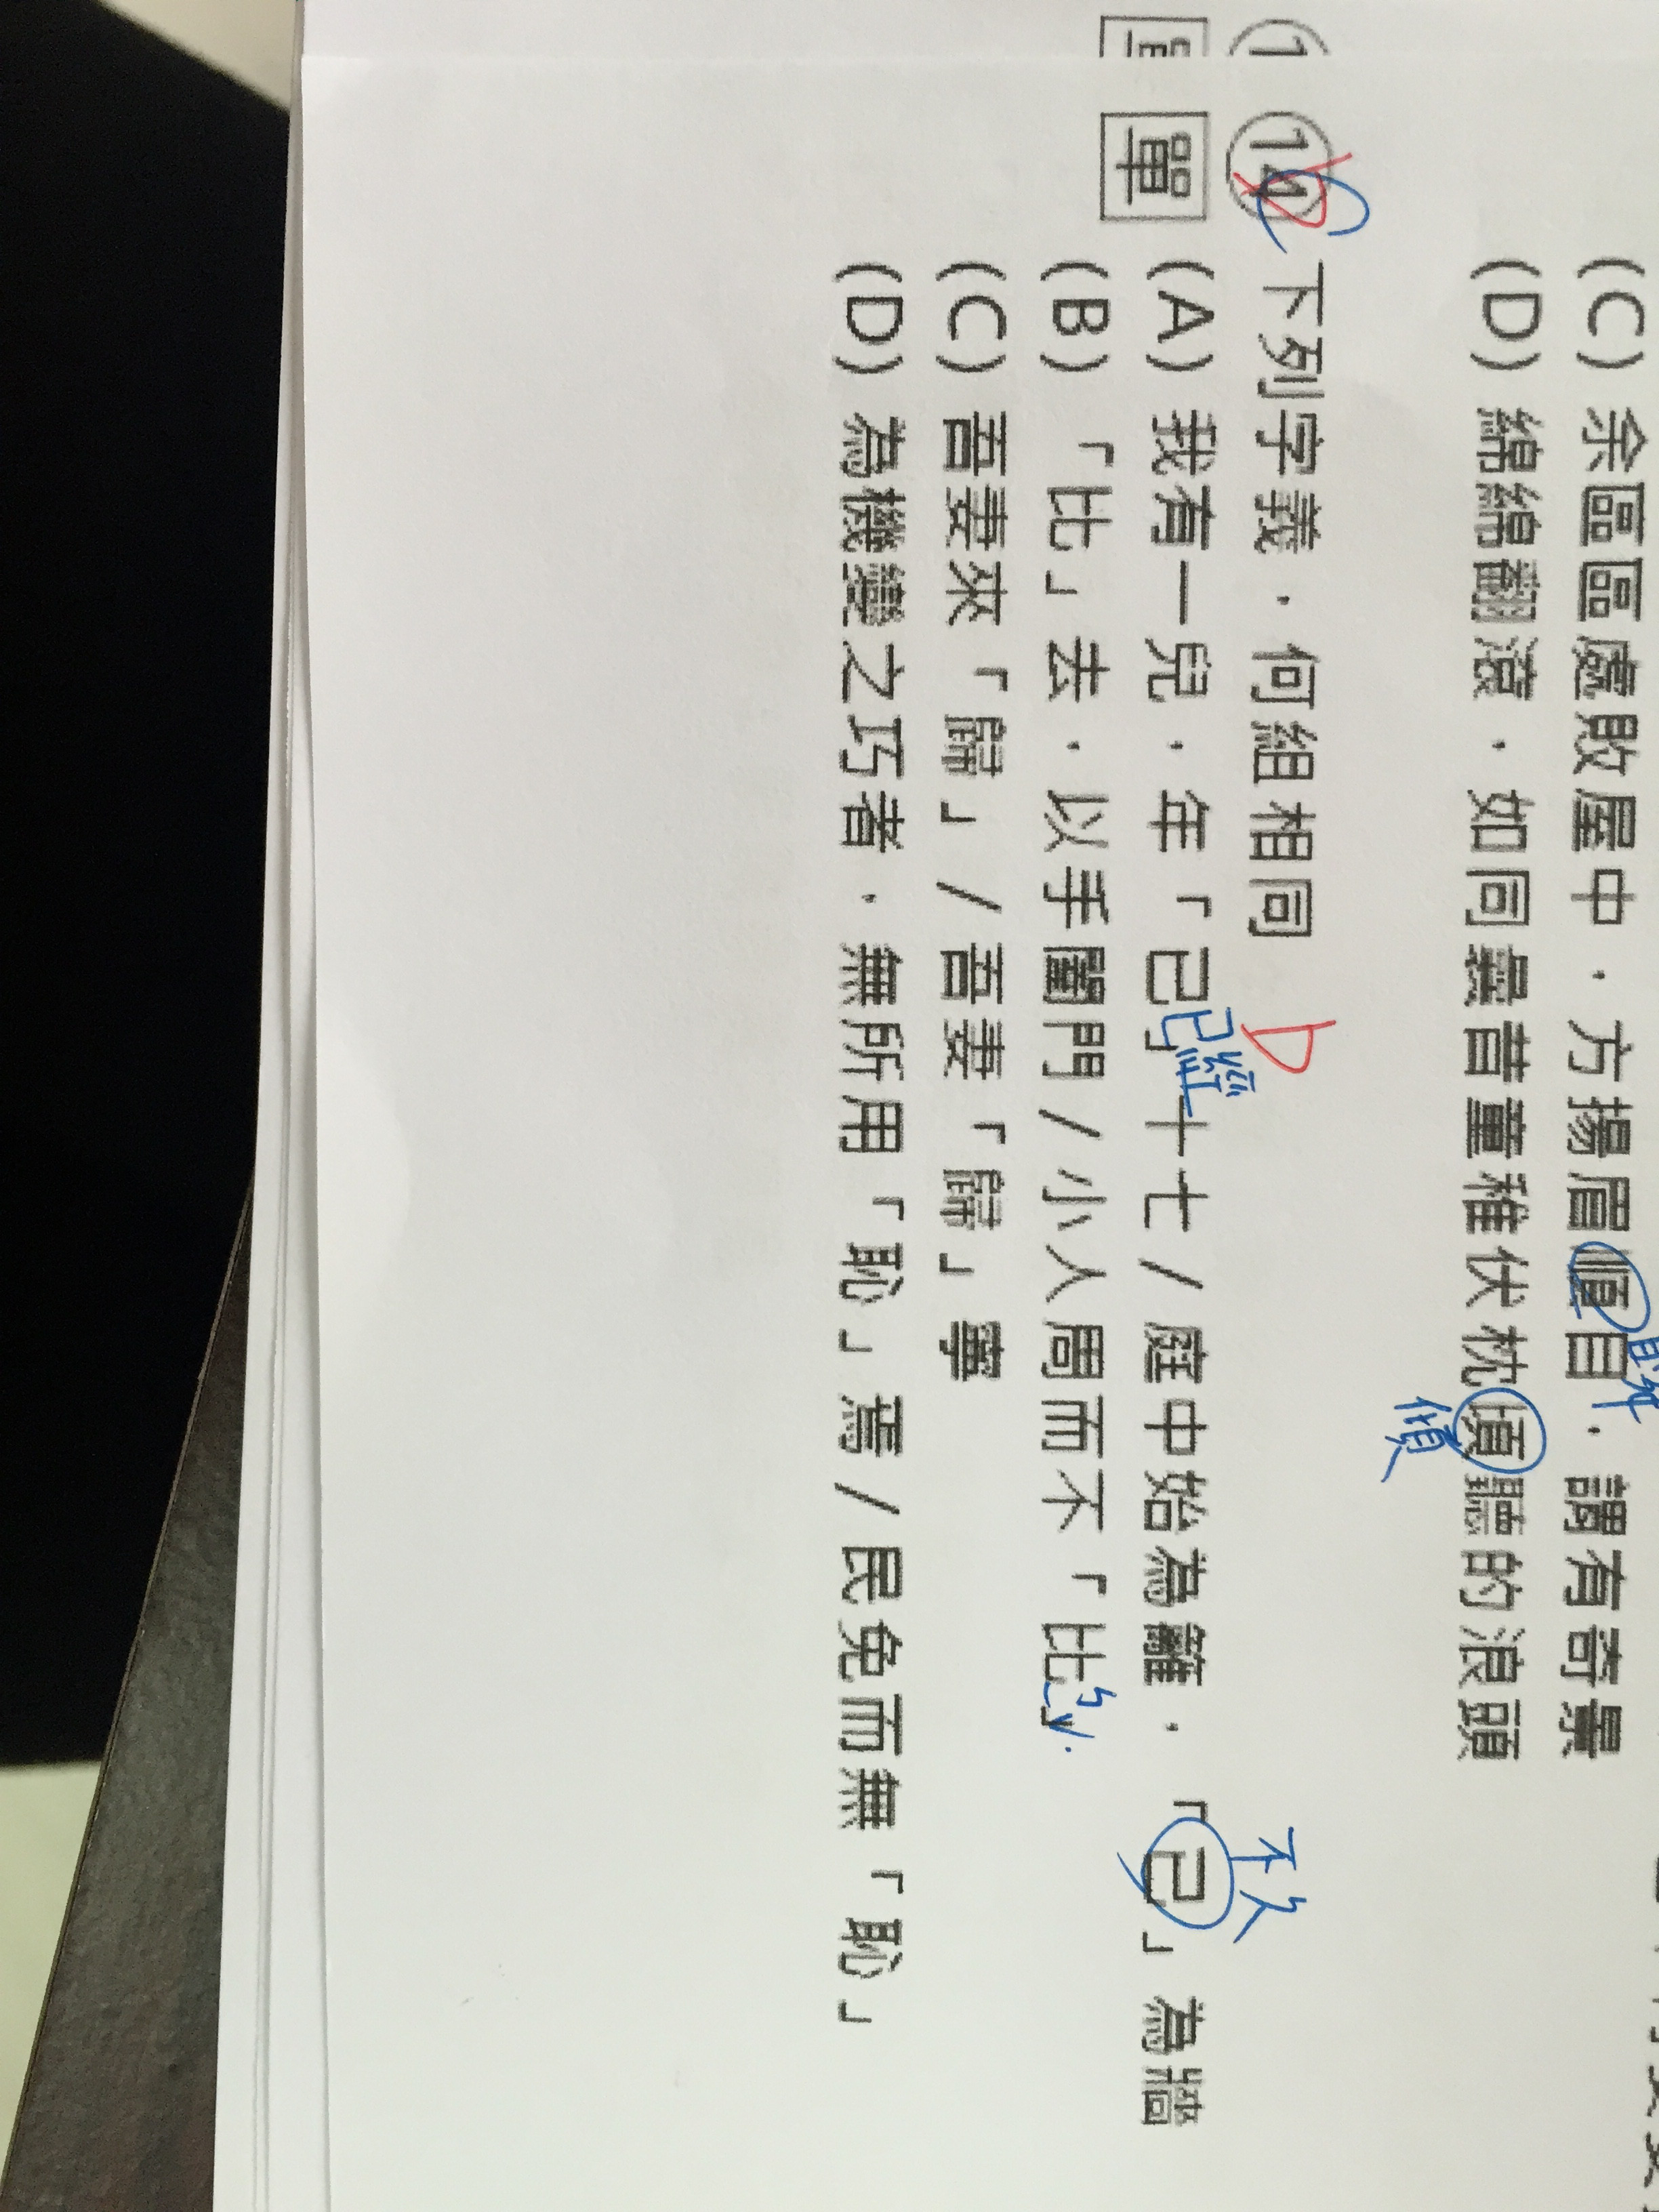 (C) 余區區處敗屋中，方揚眉慎目，謂有奇景
瞬
(D) 綿綿翻滾，如同羲昔童稚伏枕頃聽的浪頭
傾
14 下列字義，何組相同 D
單 (A) 我有一兒，年「已」十七/庭中始為籬，「已」為牆
已經
不久
(B) 「比」去，以手闔門/小人周而不「比」
ㄅㄧˋ
(C) 吾妻來「歸」/吾妻「歸」寧
(D) 為機變之巧者，無所用「恥」焉/民免而無「恥」